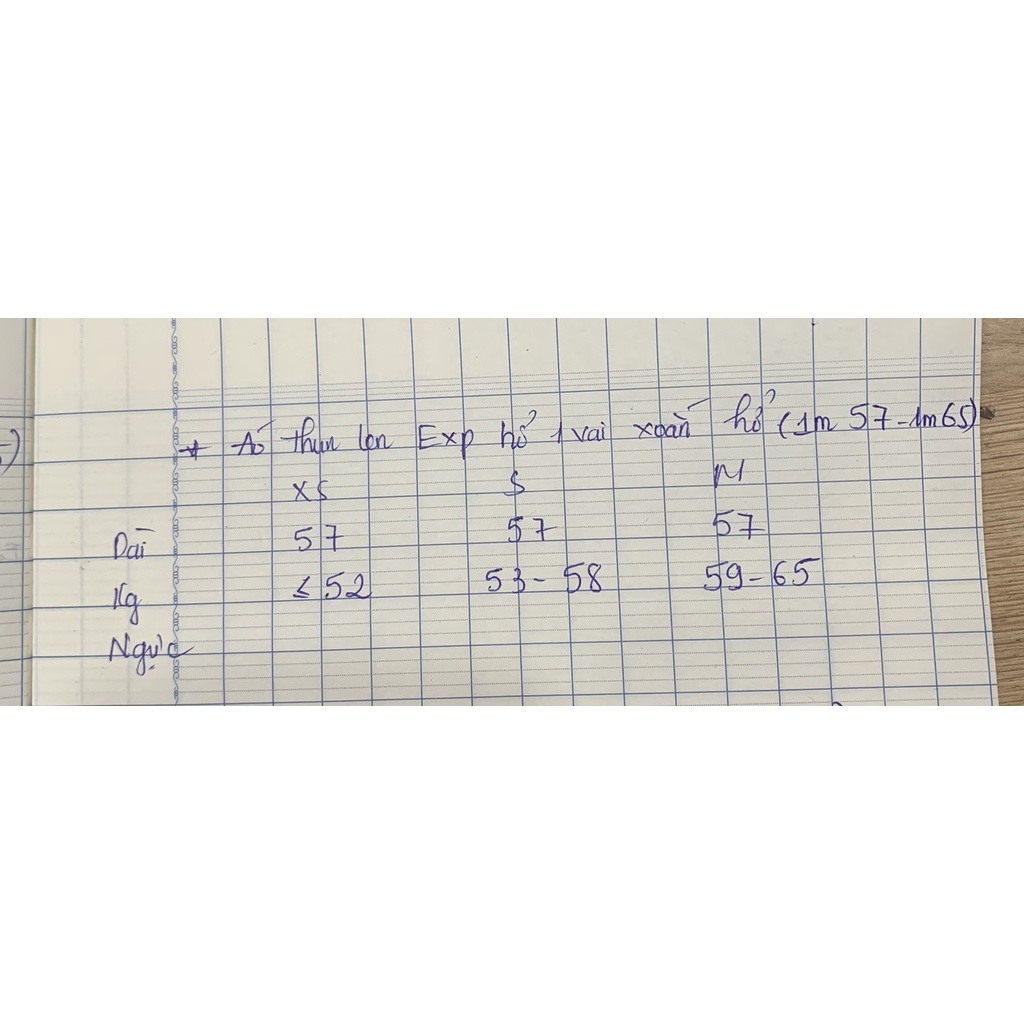 * Áo thun len Exp hở 1 vai xoắn hở (1m 57-1m65)
XS S M
Dài 57 57 57
Kg ≤ 52 53 - 58 59 - 65
Ngực